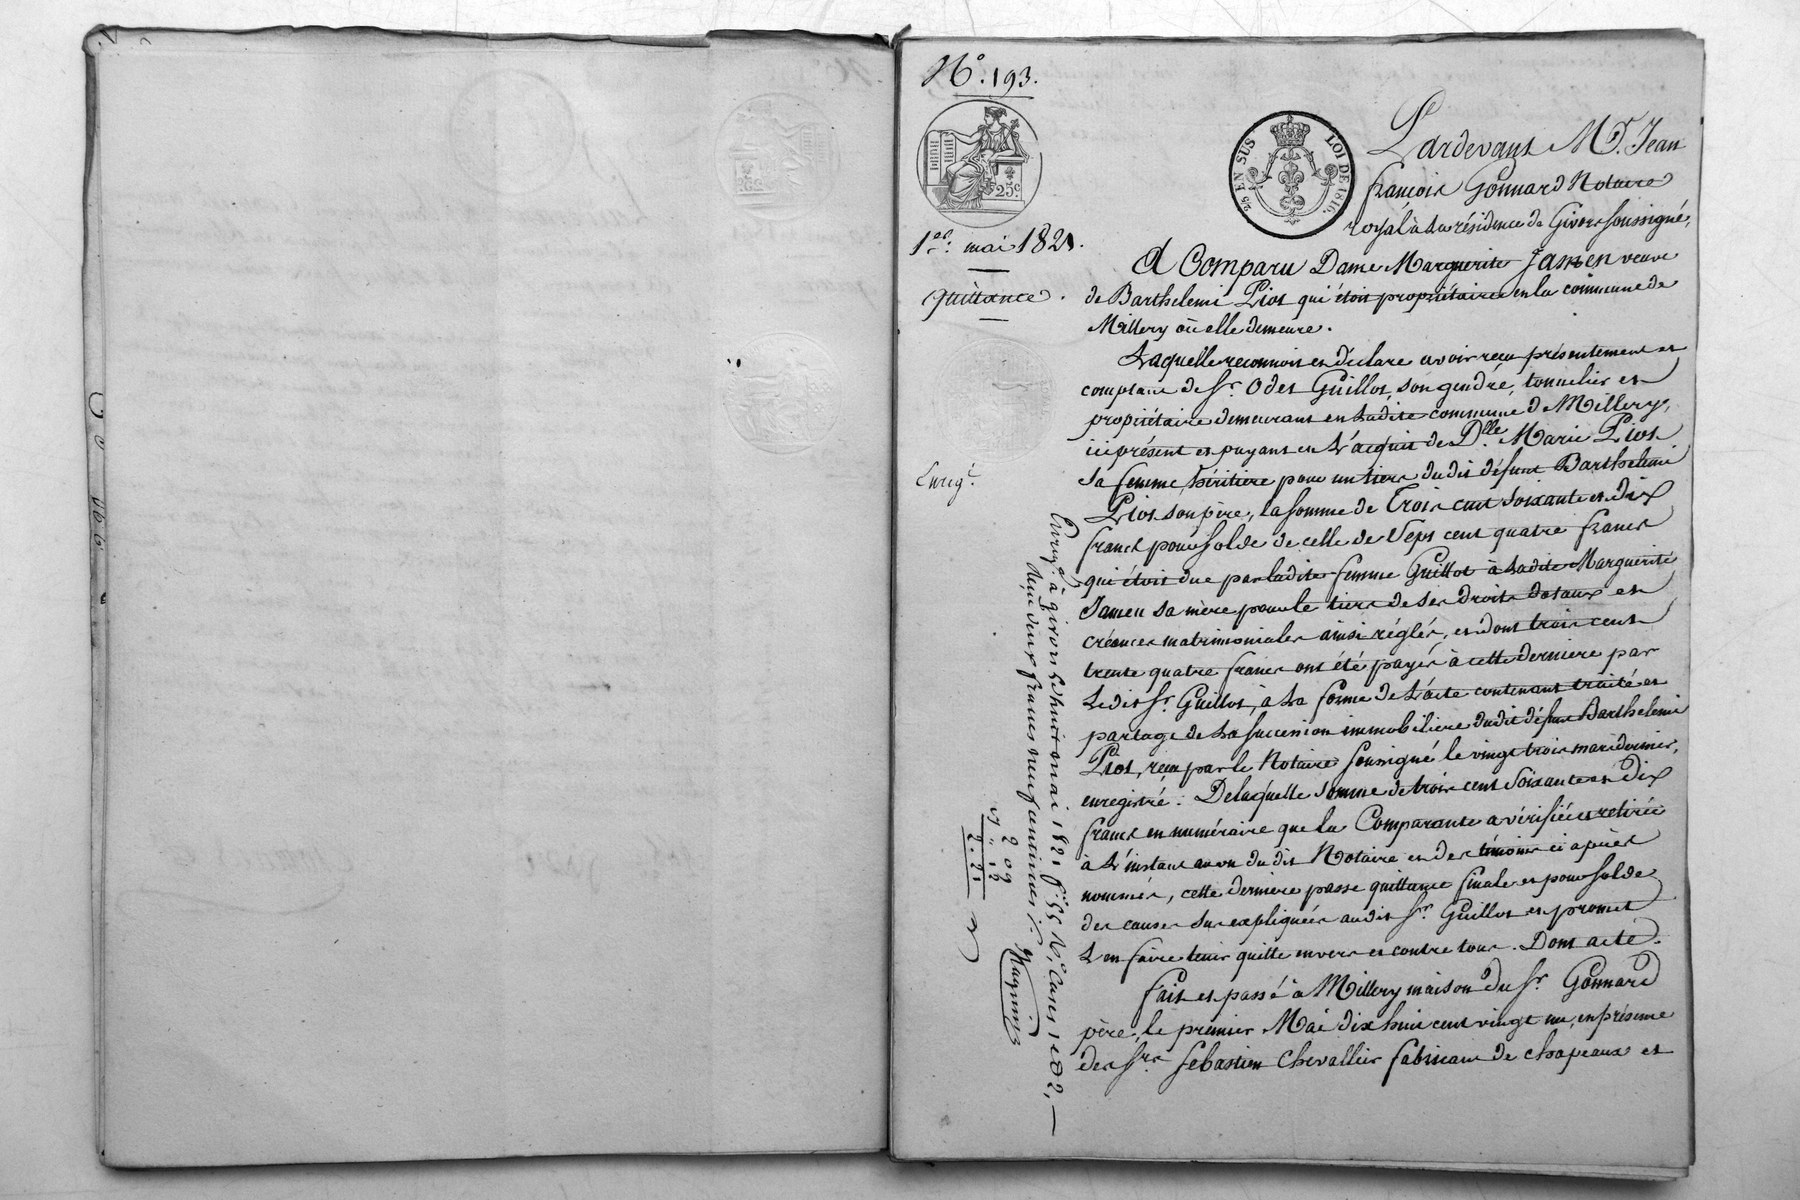 N.° 193.
25c
25 EN SUS LOI DE 1816.
1.er mai 1821.
quittance.
Enreg.t
Pardevant M.e Jean
françois Gonnard Notaire
royal à la résidence de Givors soussigné,
A Comparu Dame Marguerite Jamen veuve
de Barthelemi Piot qui étoit propriétaire en la commune de
Millery où elle demeure.
Laquelle reconnoit et déclare avoir reçu présentement et
comptant de Sr. Odet Guillot, son gendre, tonnelier et
propriétaire demeurant en ladite commune de Millery,
ici présent et payant en l'acquit de D.lle Marie Piot
sa femme, héritière pour un tiers dudit défunt Barthelemi
Piot son père, la somme de Trois cent soixante et dix
francs pour solde de celle de Sept cent quatre francs
qui étoit due par ladite femme Guillot à ladite Marguerite
Jamen sa mère pour le tiers de ses droits dotaux et
créances matrimoniales ainsi réglés, et dont trois cent
trente quatre francs ont été payés à cette dernière par
ledit Sr. Guillot, à la forme de l'acte contenant traité et
partage de la succession immobilière dudit défunt Barthelemi
Piot, reçu par le Notaire soussigné le vingt trois mars dernier,
enregistré. De laquelle somme de trois cent soixante et dix
francs en numéraire que la Comparante a vérifiée et retirée
à l'instant au vu dudit Notaire et des témoins ci après
nommés, cette dernière passe quittance finale et pour solde
des causes sus expliquées audit Sr. Guillot et promet
l'en faire tenir quitte envers et contre tous. Dont acte.
fait et passé à Millery maison du Sr. Gonnard
père, le premier Mai dix huit cent vingt un, en présence
des Srs. Sebastien Chevallier fabricant de chapeaux et
Enreg.é à givors le huit mai 1821 f.° 55 R.° Cases 1 et 2,
Reçu deux francs neuf centimes
2 09
2.21